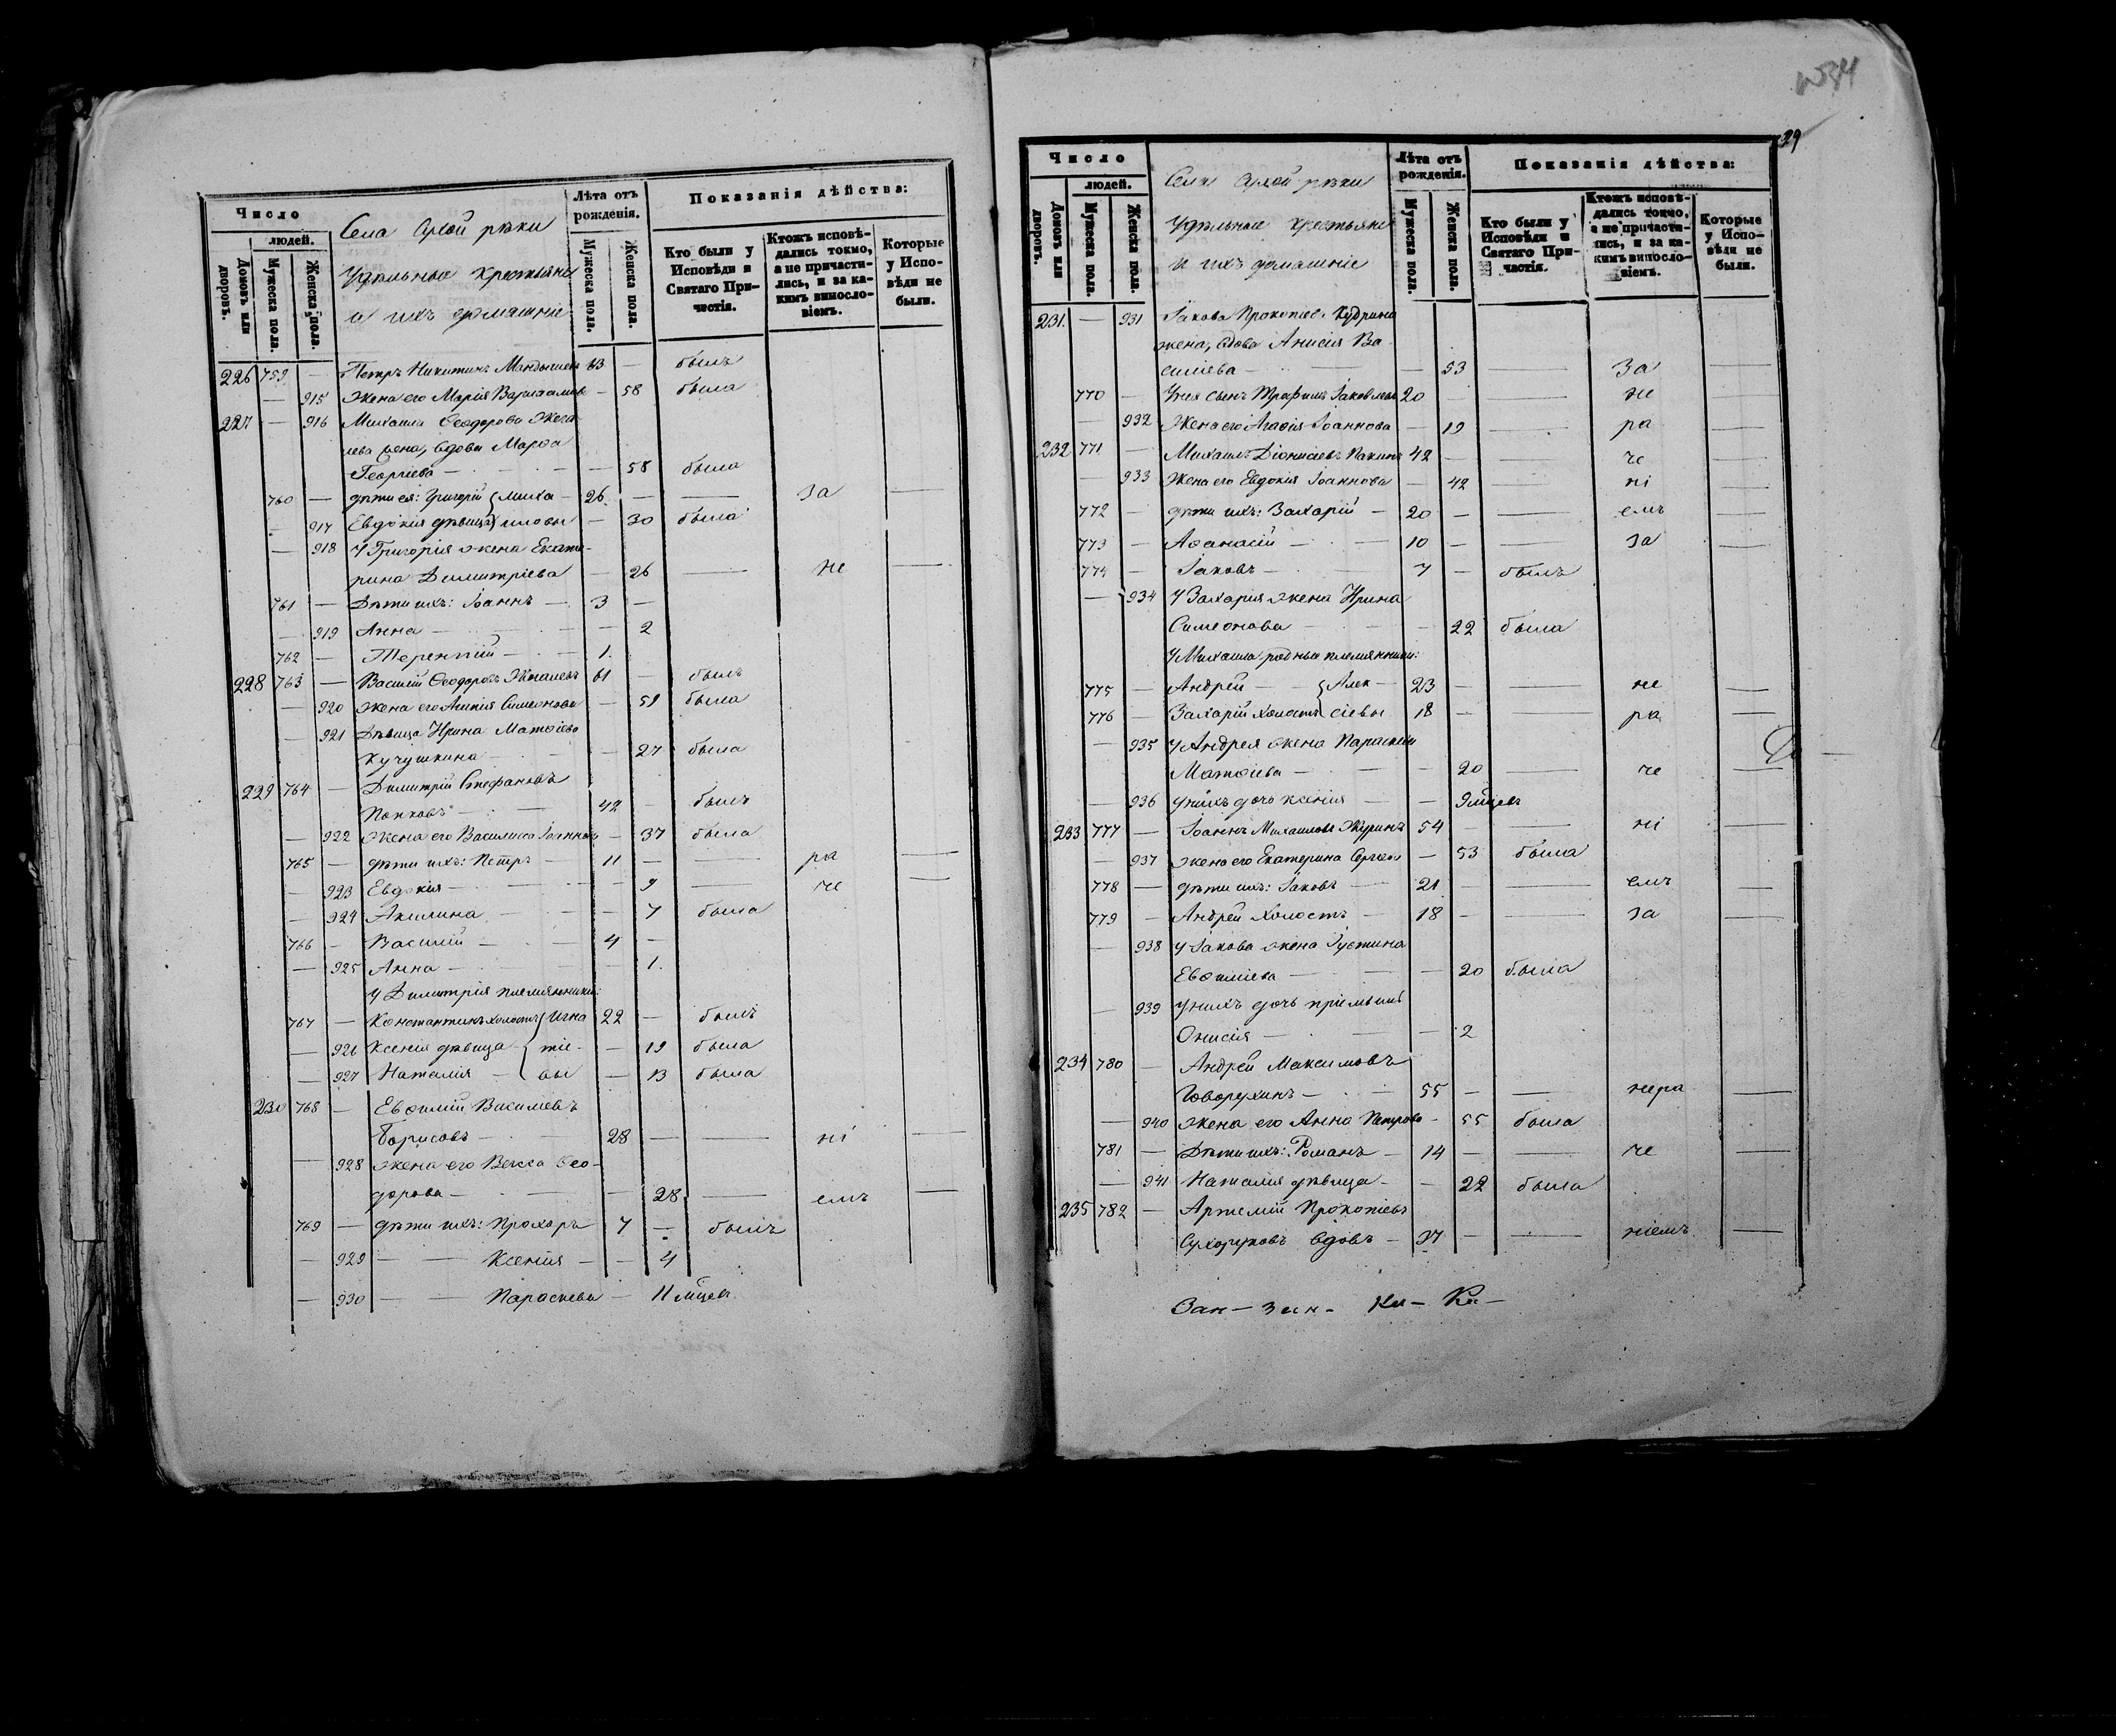 Число
людей.
Домовъ или дворовъ.
Мужеска пола.
Женска пола.
Села Сухой рѣки
Удѣльные крестьяне
и ихъ домашніе
Лѣта отъ рожденія.
Мужеска пола.
Женска пола.
Показанія дѣйства:
Кто были у Исповѣди и Святаго Причастія.
Ктожъ исповѣдались токмо, а не причастились, и за какимъ винословіемъ.
Которые у Исповѣди не были.
226 759 — Петръ Никитинъ 63 — былъ
— 915 жена его Марія Варлаамов — 58 была
227 — 916 Михаила Ѳеодорова
лева жена, вдова Марѳа
Георгіева — — 58 была
760 — дѣти ея: Григорій { Миха — 26 — — за —
— 917 Евдокія дѣвица } иловы — 30 была
— 918 У Григорія жена Екате-
рина Димитріева — 26 — не —
761 — Дѣти ихъ: Іоаннъ — 3 —
— 919 Анна — — 2
762 — Терентій — 1.
228 763 — Василій Ѳеодоровъ 61 — былъ
— 920 жена его Симеонова — 59 была
— 921 Дѣвица Ирина Матѳіева
Кучушкина — — 27 была
229 764 — Димитрій Стефановъ
Попковъ — 42 — былъ
— 922 жена его Василисса Іоаннова — 37 была
765 — дѣти ихъ: Петръ — 11 — — ра —
— 923 Евдокія — — 9 — че —
— 924 Акилина — — 7 была
766 — Василій — 4 —
— 925 Анна — — 1.
У Димитрія племянники:
767 — Константинъ холостъ { Игна 22 — былъ
— 926 Ксенія дѣвица { тіе- — 19 была
— 927 Наталія — { вы — 13 была
230 768 — Евѳимій Василіевъ
Борисовъ — 28 — — ні —
— 928 жена его Васса Ѳео-
дорова — — 28 — емъ —
769 — дѣти ихъ: Прохоръ 7 — былъ
— 929 — — Ксенія — — 4
— 930 — — Параскева — 11 мѣсяц
29
Число
людей.
Домовъ или дворовъ.
Мужеска пола.
Женска пола.
Села Сухой рѣки
Удѣльные крестьяне
и ихъ домашніе
Лѣта отъ рожденія.
Мужеска пола.
Женска пола.
Показанія дѣйства:
Кто были у Исповѣди и Святаго Причастія.
Ктожъ исповѣдались токмо, а не причастились, и за какимъ винословіемъ.
Которые у Исповѣди не были.
231. — 931 Іакова Прокопіева Кудрина
жена, вдова Анисія Ва
силіева — — 53 — За —
770 — У нея сынъ Трофимъ Іаковлевъ 20 — — не —
— 932 Жена его Агаѳія Іоаннова — 19 — ра —
232 771 — Михаилъ Діонисіевъ Пакинъ 42 — — че —
— 933 Жена его Евдокія Іоаннова — 42 — ні —
772 — дѣти ихъ: Захарій — 20 — — емъ —
773 — Аѳанасій — 10 — — за —
774 — Іаковъ — 7 — былъ
— 934 У Захарія жена Ирина
Симеонова — — 22 была
У Михаила родные племянники:
775 — Андрей — { Алек — 23 — — не —
776 — Захарій холостъ { сіевы 18 — — ра —
— 935 У Андрея жена Параскева
Матѳіева — — 20 — че —
— 936 У нихъ дочь Ксенія — — 9 мѣсяцевъ
233 777 — Іоаннъ Михаиловъ Журинъ 54 — — ні —
— 937 жена его Екатерина Сергіева — 53 была
778 — дѣти ихъ: Іаковъ — 21 — — емъ —
779 — Андрей холостъ — 18 — — за —
— 938 У Іакова жена Іустина
Евѳиміева — — 20 была
— 939 У нихъ дочь пріемышъ
Онисія — — 2
234 780 — Андрей Максимовъ
Говорухинъ — 55 — — нера —
— 940 жена его Анна Петрова — 55 была
781 — Дѣти ихъ: Романъ — 14 — — че —
— 941 Наталія дѣвица — — 22 была
235 782 — Артемій Прокопіевъ
Сухоруковъ вдовъ — 37 — — ніемъ —